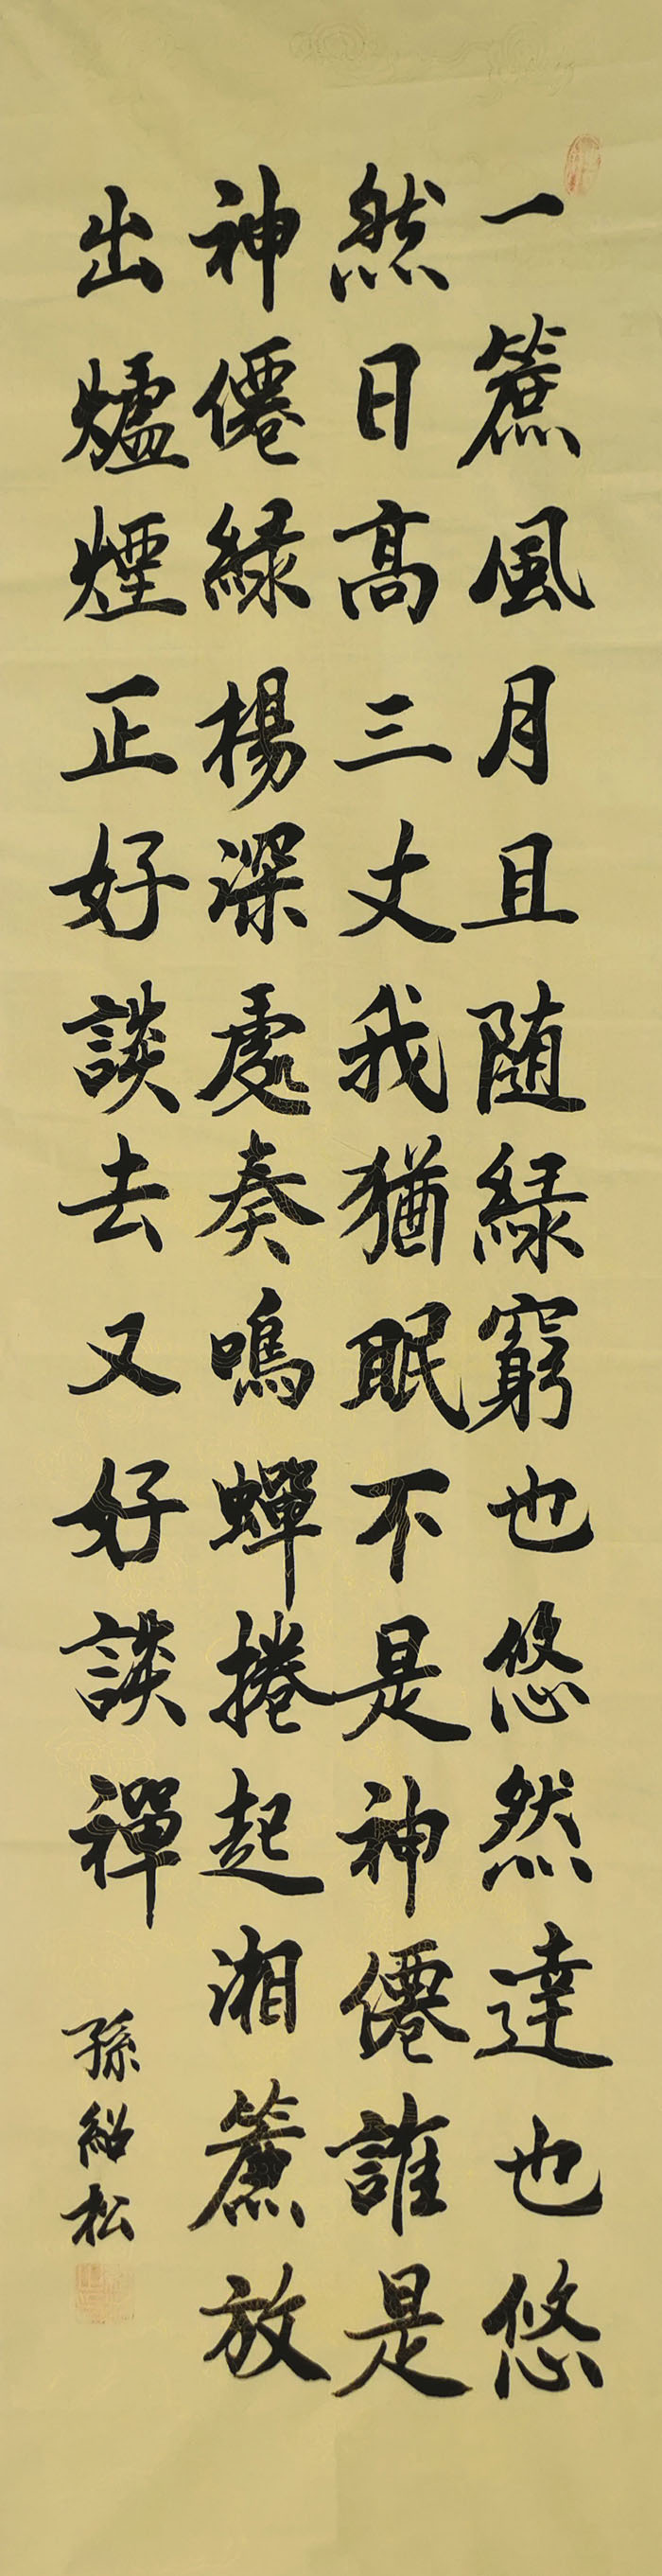 一簾風月且随緑窮也悠然達也悠
然日高三丈我猶眠不是神僊誰是
神僊緑楊深處奏鳴蟬捲起湘簾放
出爐煙正好談去又好談禪
孫紹松